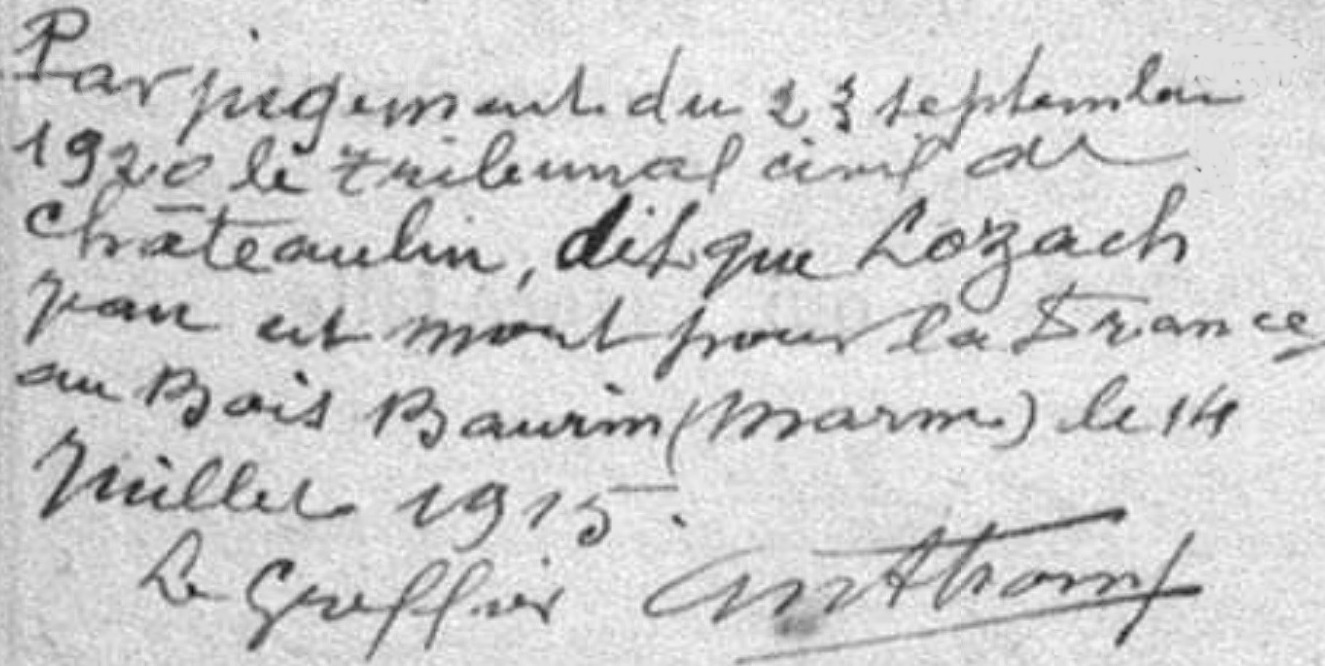 Par jugement du 23 septembre
1920 le tribunal civil de
Châteaulin, dit que Lozach
jean est mort pour la France
au Bois Baurin (Marne) le 14
Juillet 1915.
Le Greffier